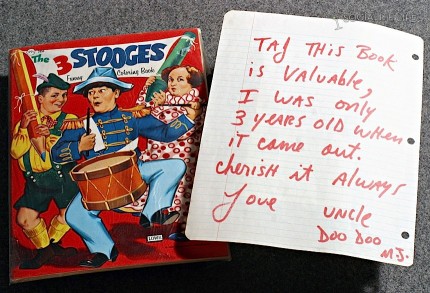 The 3 STOOGES
Funny Coloring Book
LOWE
TAJ THIS BOOK
is VALUABLE,
I WAS only
3 YEARS OLD WHEN
iT came out.
cherish iT ALWAYS
Love UNCLE
DOO DOO
MJ.